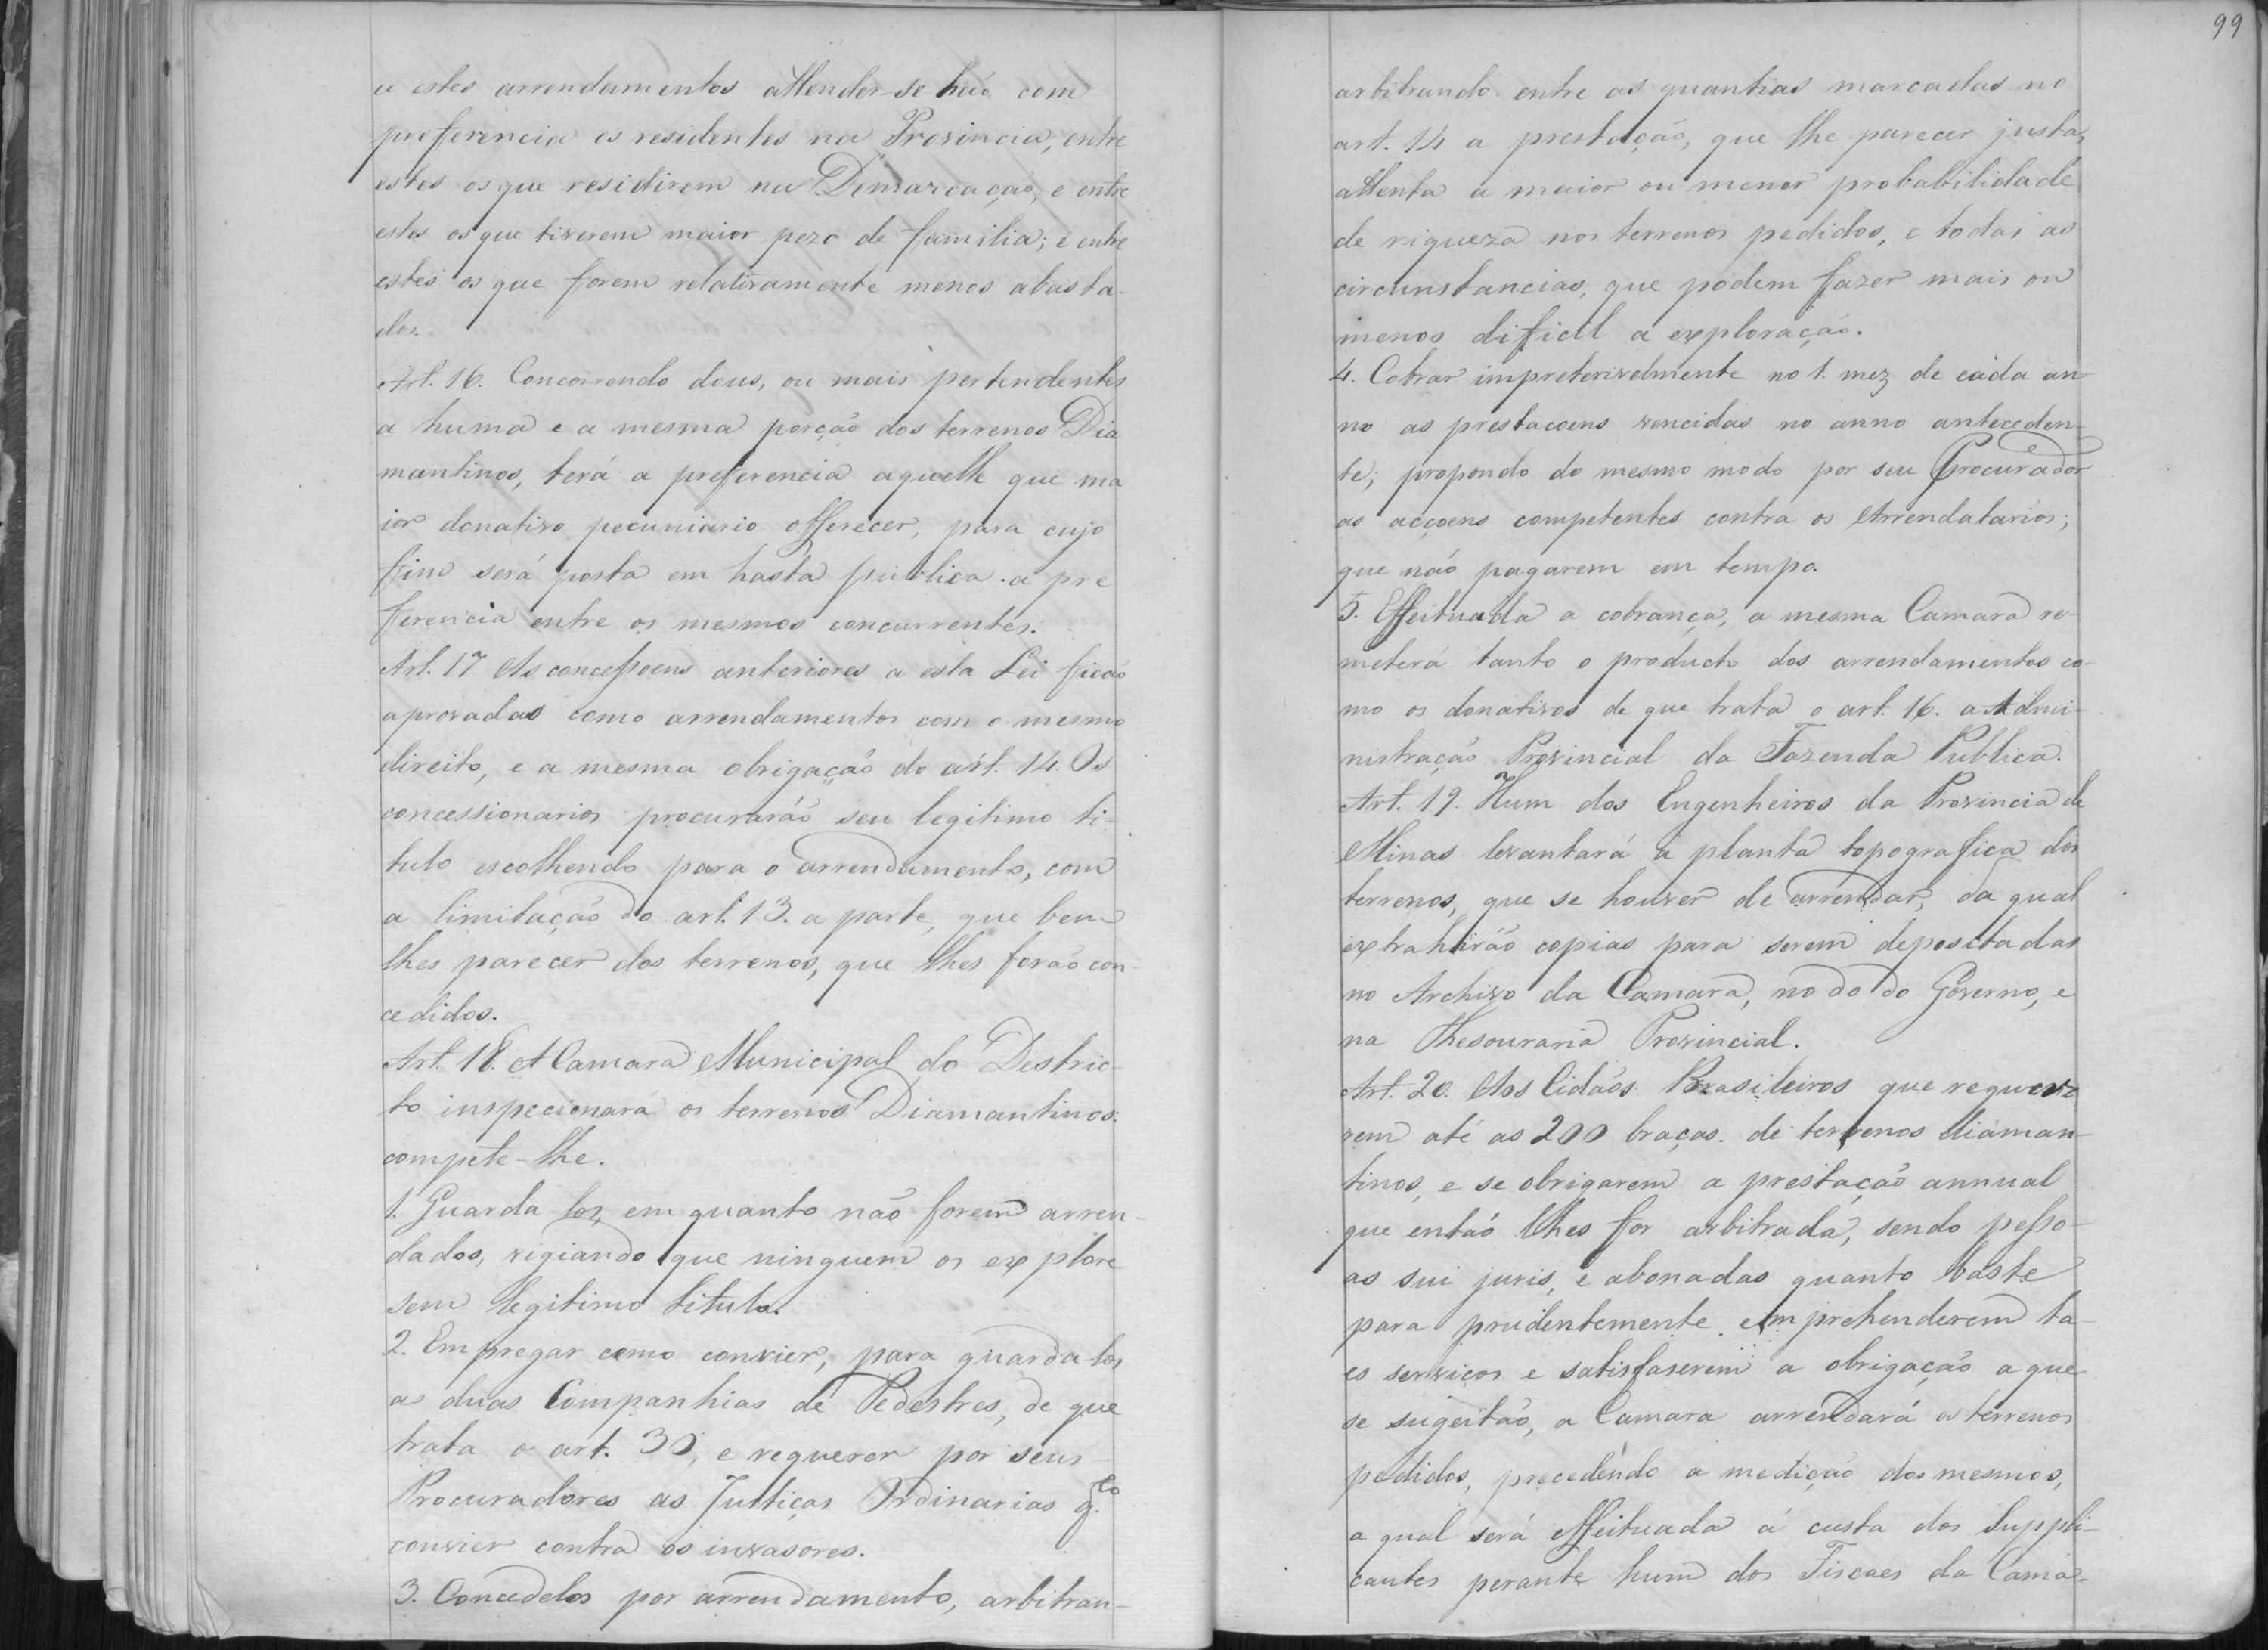 a estes arrendamentos attender-se hão com
preferencia os residentes na Provincia, entre
estes os que residirem na Demarcação, e entre
estes os que tiverem maior pezo de familia; e entre
estes os que forem relativamente menos abasta-
dos.
Art. 16. Concorrendo dous, ou mais pertendentes
a huma e a mesma porção dos terrenos Dia
mantinos, terá a preferencia aquelle que ma
ior donativo pecuniario offerecer, para cujo
fim será posta em hasta publica a pre
ferencia entre os mesmos concurrentes.
Art. 17 As concessoens anteriores a esta Lei ficão
aprovadas como arrendamentos com o mesmo
direito, e a mesma obrigação do art. 14. Os
concessionarios procurarão seu legitimo ti-
tulo escolhendo para o arrendamento, com
a limitação do art. 13. a parte, que bem
lhes parecer dos terrenos, que lhes forão con-
cedidos.
Art. 18. A Camara Municipal do Destric-
to inspecionará os terrenos Diamantinos:
compete-lhe.
1. Guarda-los, em quanto não forem arren-
dados, vigiando que ninguem os explore
sem legitimo titulo.
2. Empregar como convier, para guarda-los
as duas Companhias de Pedestres, de que
trata o art. 30, e requerer por seus
Procuradores as Justiças Ordinarias q.to
convier contra os invasores.
3. Concedelos por arrendamento, arbitran-
99
arbitrando entre as quantias marcadas no
art. 14 a prestação, que lhe parecer justa,
attenta a maior ou menor probabilidade
de riqueza nos terrenos pedidos, e todas as
circunstancias, que podem fazer mais ou
menos dificil a exploração.
4. Cobrar impreterivelmente no 1. mez de cada an-
no as prestacoens vencidas no anno anteceden-
te; propondo do mesmo modo por seu Procurador
as acçoens competentes contra os Arrendatarios;
que não pagarem em tempo.
5. Effeituada a cobrança, a mesma Camara re-
meterá tanto o producto dos arrendamentos co-
mo os donativos de que trata o art. 16. a Admi-
nistração Provincial da Fazenda Publica.
Art. 19. Hum dos Engenheiros da Provincia de
Minas levantará a planta topografica dos
terrenos, que se houver de arrendar, da qual
extrahirão copias para serem depositadas
no Archivo da Camara, no do do Governo, e
na Thesouraria Provincial.
Art. 20. Aos Cidãos Brasileiros que requere
rem até as 200 braças de terrenos diaman-
tinos, e se obrigarem a prestação annual
que então lhes for arbitrada, sendo pesso-
as sui juris, e abonadas quanto baste
para prudentemente emprehenderem ta-
es serviços e satisfaserem a obrigação a que
se sugeitão, a Camara arrendará os terrenos
pedidos, precedendo a medição dos mesmos,
a qual será effeituada á custa dos Suppli-
cantes perante hum dos Fiscaes da Cama-